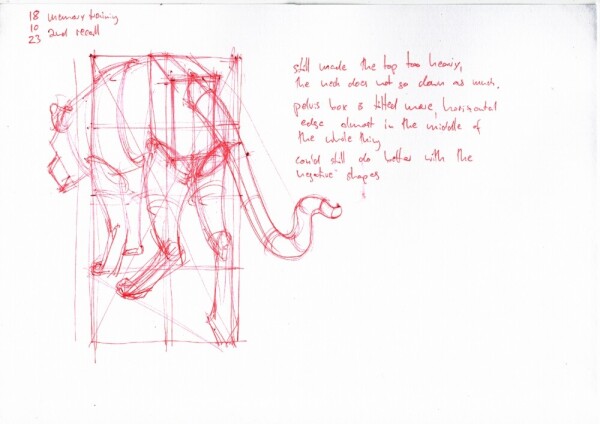 18 memory training
10
23 2nd recall
still made the top too heavy,
the neck does not go down as much.
pelvis box is tilted more, horizontal
edge almost in the middle of
the whole thing
could still do better with the
negative shapes